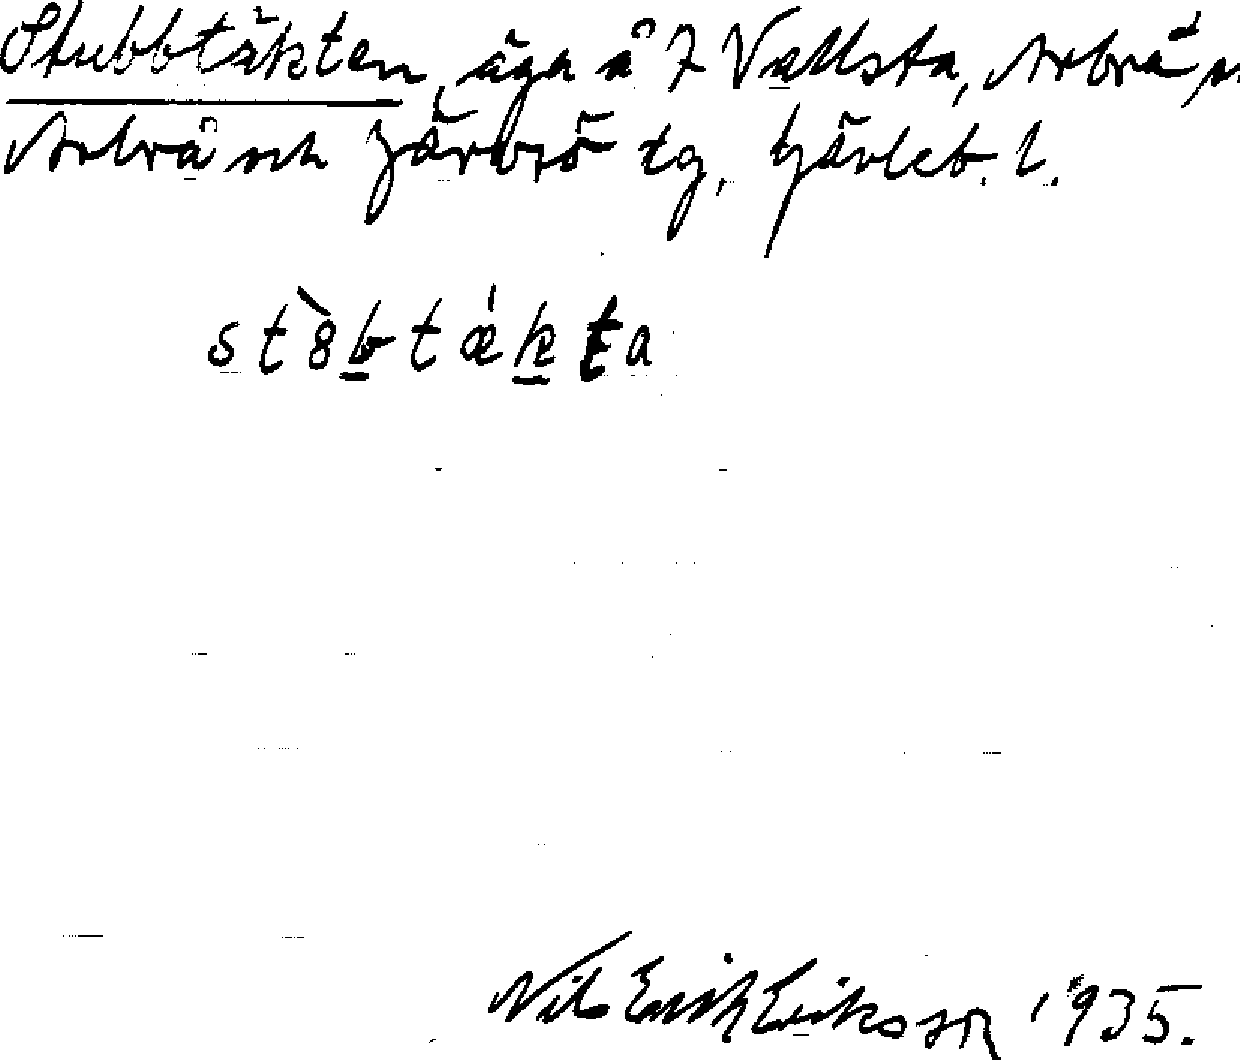 Stubbtäkten, äga å 7 Vallsta, Arbrå s
Arbrå och Järvsö tg, Gävleb. l.
stòbtǽkta
Nils Erik Eriksson 1935.